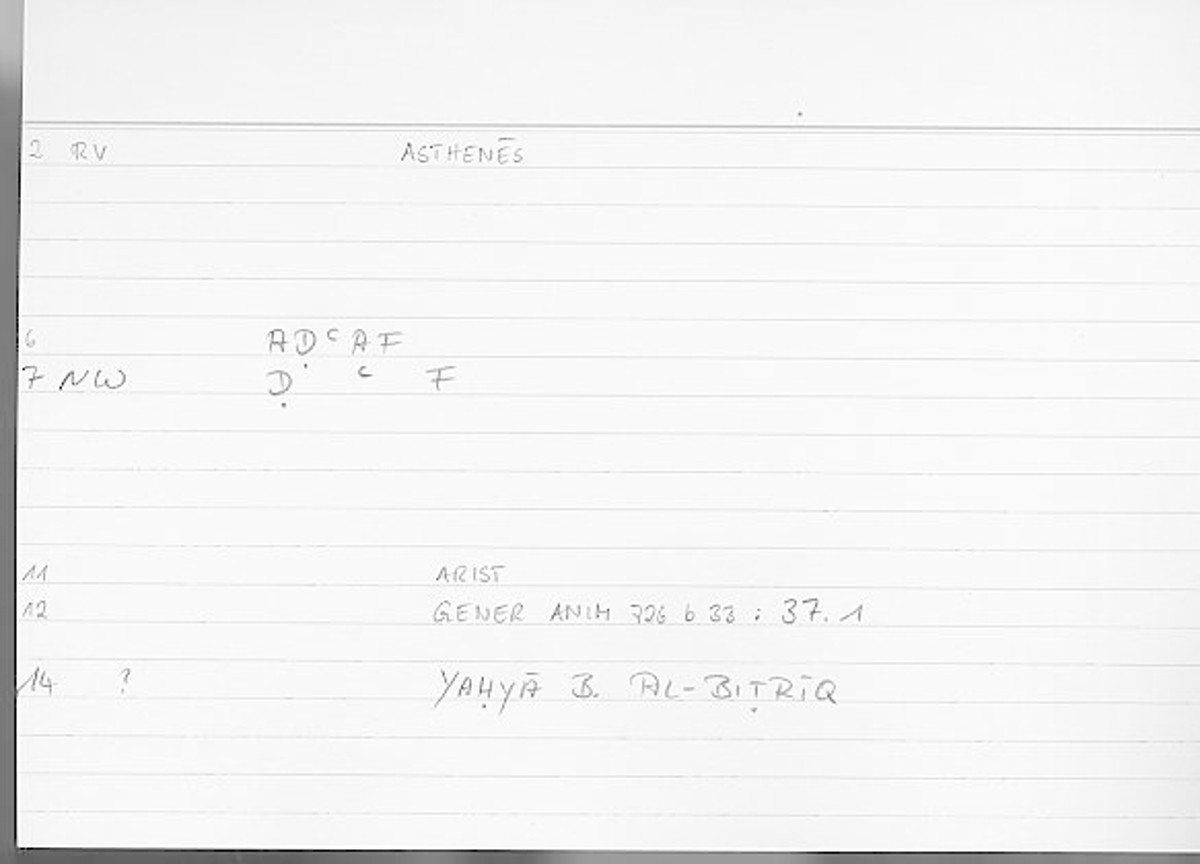 2 RV ASTHENĒS
6 AḌʿAF
7 NW Ḍ ʿ F
11 ARIST
12 GENER ANIM 726 b 33 : 37. 1
14 ? YAḤYĀ B. AL-BIṬRĪQ